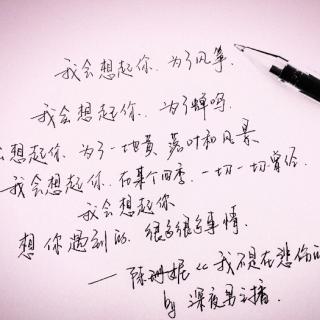 我会想起你.为了风筝.
我会想起你..为了蝉鸣.
会想起你.为了一地黄 落叶和风景
我会想起你..在某个四季.一切一切曾经.
我会想起你
想你遇到的.很多很多事情.
——陈珊妮《我不是在悲伤
by 深夜男主播.